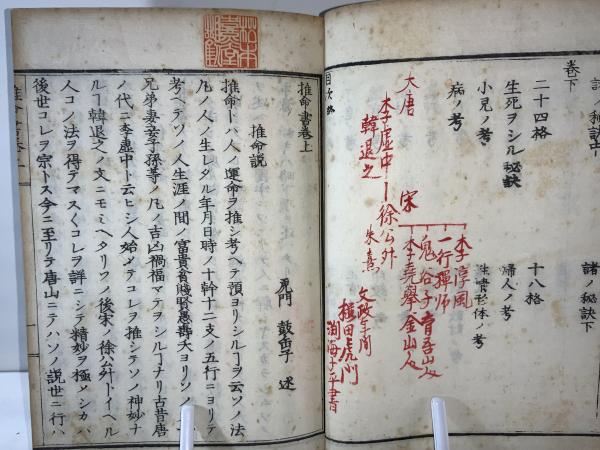 諸ノ秘訣中
卷下
二十四格
生死ヲシル秘訣
小兒ノ考
病ノ考
十八格
婦人ノ考
諸ノ秘訣下
目次終
大唐
李虚中ー徐公升
韓退之
朱熹
宋
李淳風
一行禅師
鬼谷子
李堯舉
金山人
文政年間
桜田虎門
渕海子平書
推命書卷上
推命説
虎門 鼓缶子 述
推命トハ人ノ運命ヲ推シ考ヘテ預ヨリシルヿヲ云ソノ法
凡ノ人ノ生レタル年月日時ノ十幹十二支ノ五行ニヨリテ
考ヘテソノ人生涯ノ間ノ富貴貧賤賢愚壽夭ヨリソノ父
兄弟妻妾子孫等ノ凡ノ吉凶禍福マテヲシルヿナリ古昔唐
ノ代ニ李虚中ト云ヒシ人始メテコレヲ推シテソノ神妙ナ
ルヿ韓退之ノ文ニモミヘタリソノ後宋ノ徐公升トイヘル
人コノ法ヲ得テマスくコレヲ詳ニシテ精妙ヲ極メシカハ
後世コレヲ宗トス今ニ至リテ唐山ニテハソノ説世ニ行ハ
推命書卷上